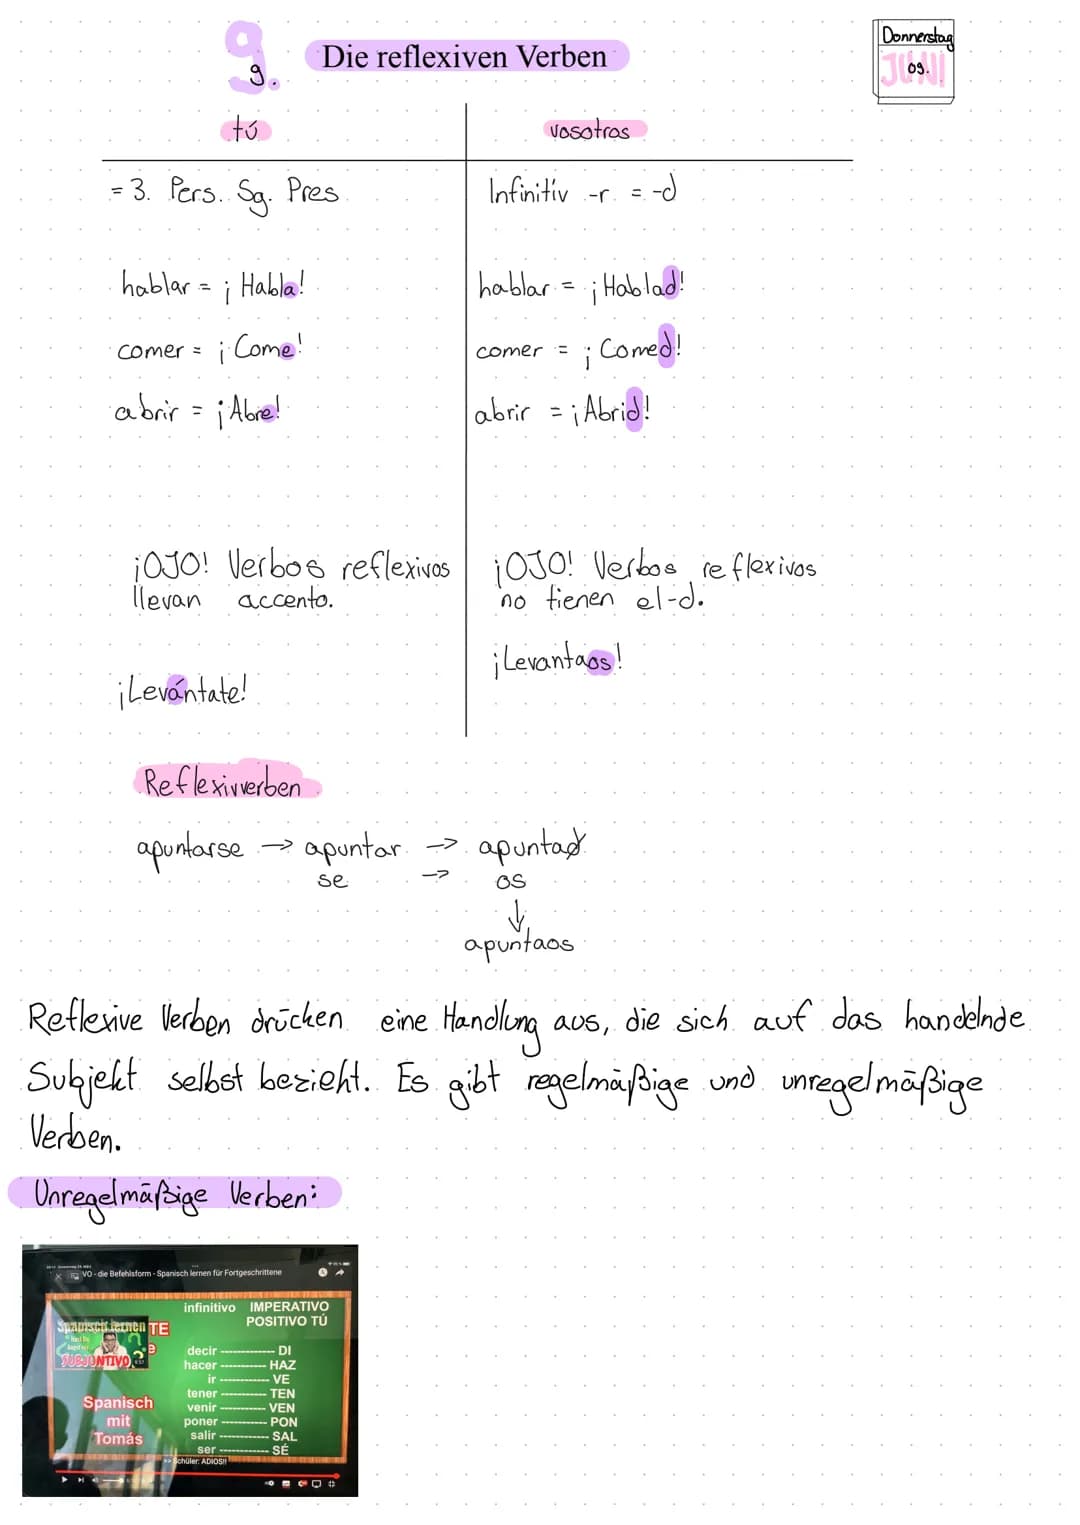 9.
9.
Die reflexiven Verben
Donnerstag
JUNI
09.
tú
vosotros
= 3. Pers. Sg. Pres
Infinitiv -r = -d
hablar = ¡Habla!
hablar = ¡Hablad!
comer = ¡Come!
comer = ¡Comed!
abrir = ¡Abre!
abrir = ¡Abrid!
¡OJO! Verbos reflexivos
llevan accento.
¡OJO! Verbos reflexivos
no tienen el -d.
¡Levantaos!
¡Levántate!
Reflexivverben
apuntarse → apuntar → apuntad
se → os
↓
apuntaos
Reflexive Verben drücken eine Handlung aus, die sich auf das handelnde
Subjekt selbst bezieht. Es gibt regelmäßige und unregelmäßige
Verben.
Unregelmäßige Verben:
VO - die Befehlsform - Spanisch lernen für Fortgeschrittene
infinitivo IMPERATIVO
POSITIVO TÚ
Spanisch lernen TE
SUBJUNTIVO
decir ------------- DI
hacer ----------- HAZ
ir ------------ VE
tener ----------- TEN
venir ----------- VEN
poner ----------- PON
salir ------------ SAL
ser ------------ SÉ
Spanisch
mit
Tomás
>> Schüler: ADIOS!!